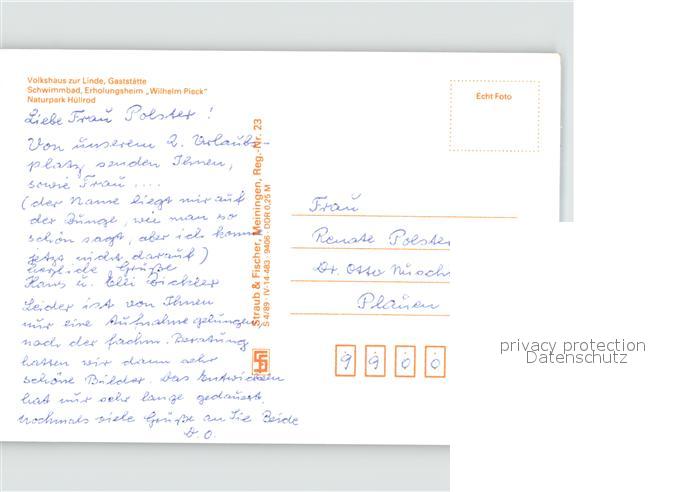 Volkshaus zur Linde, Gaststätte
Schwimmbad, Erholungsheim „Wilhelm Pieck"
Naturpark Hüllrod
Liebe Frau Polster!
Von unserem 2. Urlaubs-
platz senden Ihnen,
sowie Frau ....
(der Name liegt mir auf
der Zunge, wie man so
schön sagt, aber ich komme
jetzt nicht darauf)
herzliche Grüße
Hans u. Elli
Leider ist von Ihnen
nur eine Aufnahme gelungen,
nach der fachm. Beratung
hatten wir dann sehr
schöne Bilder. Das Entwickeln
hat nur sehr lange gedauert.
Nochmals viele Grüße an Sie Beide
D. O.
Straub & Fischer, Meiningen, Reg.-Nr. 23
S 4/89 · IV-14-483 · 9406 · DDR 0,25 M
Echt Foto
Frau
Renate Polster
Dr. Otto Nusch
Plauen
9 9 0 0
privacy protection
Datenschutz